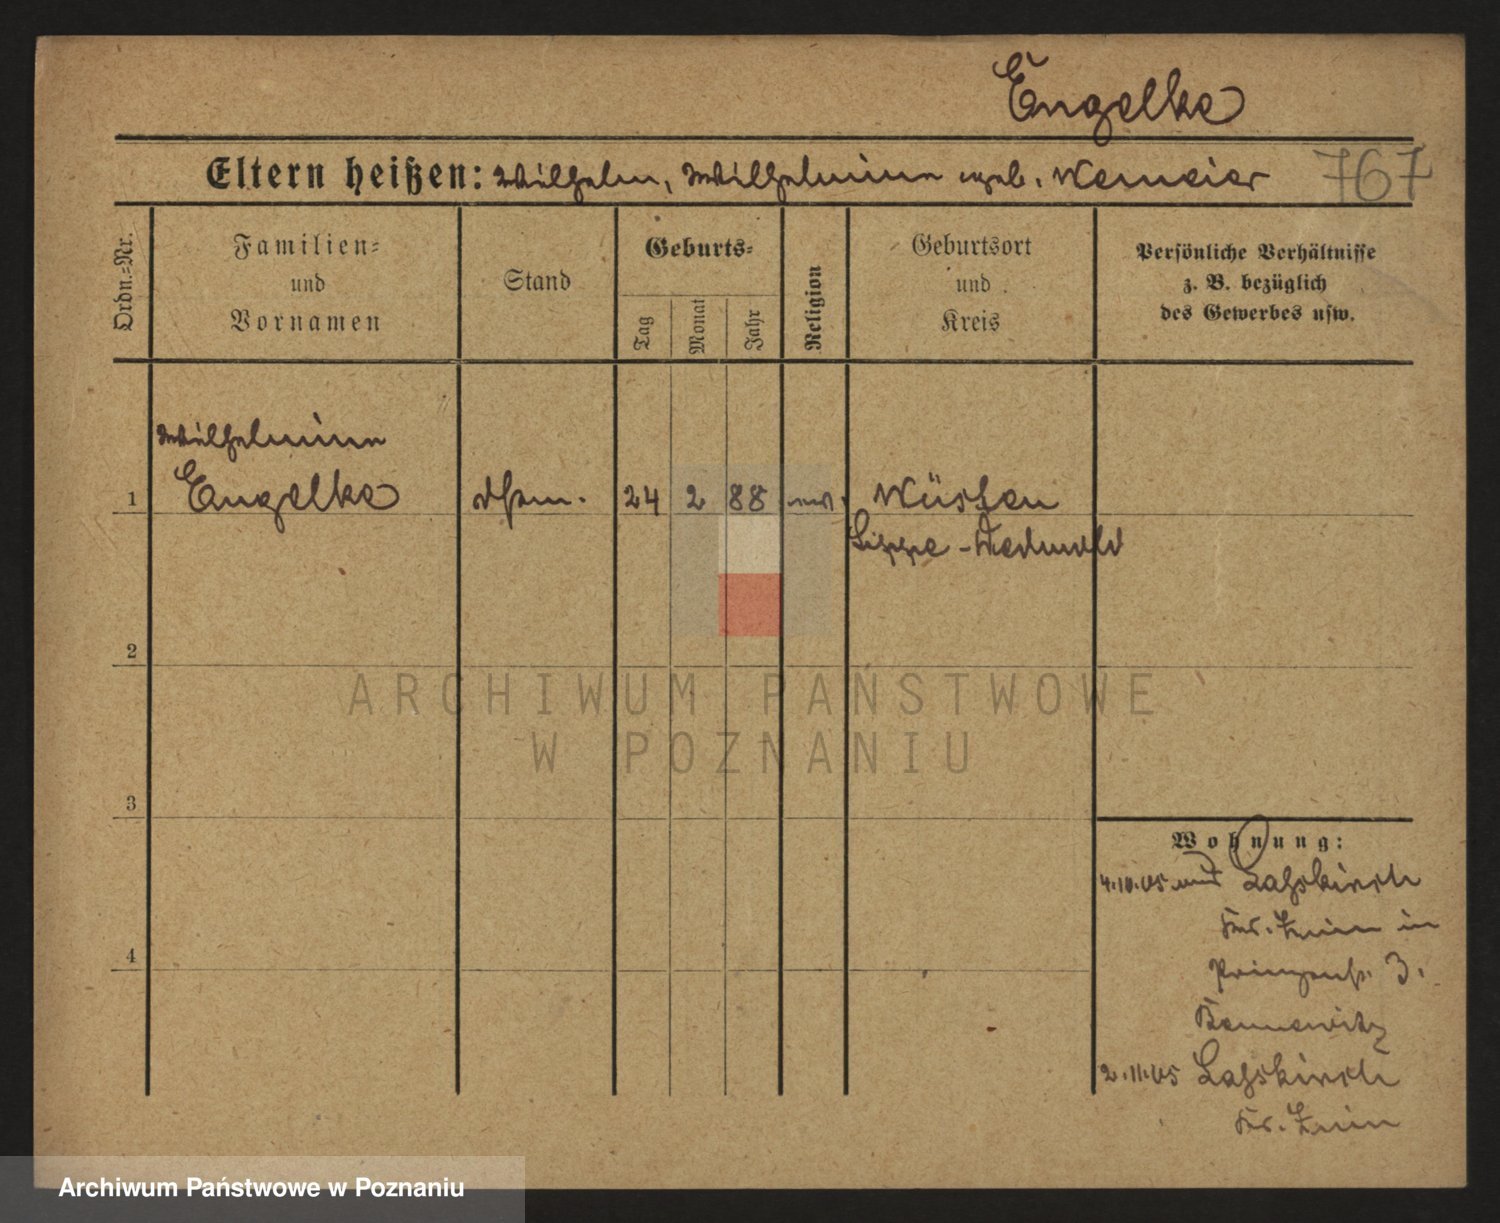 Engelke
Eltern heißen: Wilhelm, Wilhelmine geb. Wemeier 767
Ordn.=Nr.
Familien=
und
Vornamen
Stand
Geburts=
Tag
Monat
Jahr
Religion
Geburtsort
und
Kreis
Persönliche Verhältnisse
z. B. bezüglich
des Gewerbes usw.
Wilhelmine
1 Engelke 24 2 88 Wüsten
Lippe-Detmold
2
ARCHIWUM PAŃSTWOWE
W POZNANIU
3
Wohnung:
4.10.05 Lasskirch
Kr. Znin in
4
Prinzenst. 3.
Bennewitz
2.11.05 Lasskirch
Kr. Znin
Archiwum Państwowe w Poznaniu